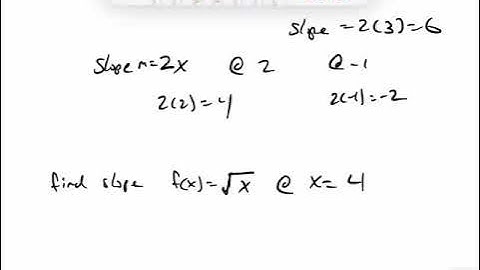 slope = 2(3) = 6
slope m = 2x @ 2 @ -1
2(2) = 4 2(-1) = -2
find slope f(x) = √x @ x = 4